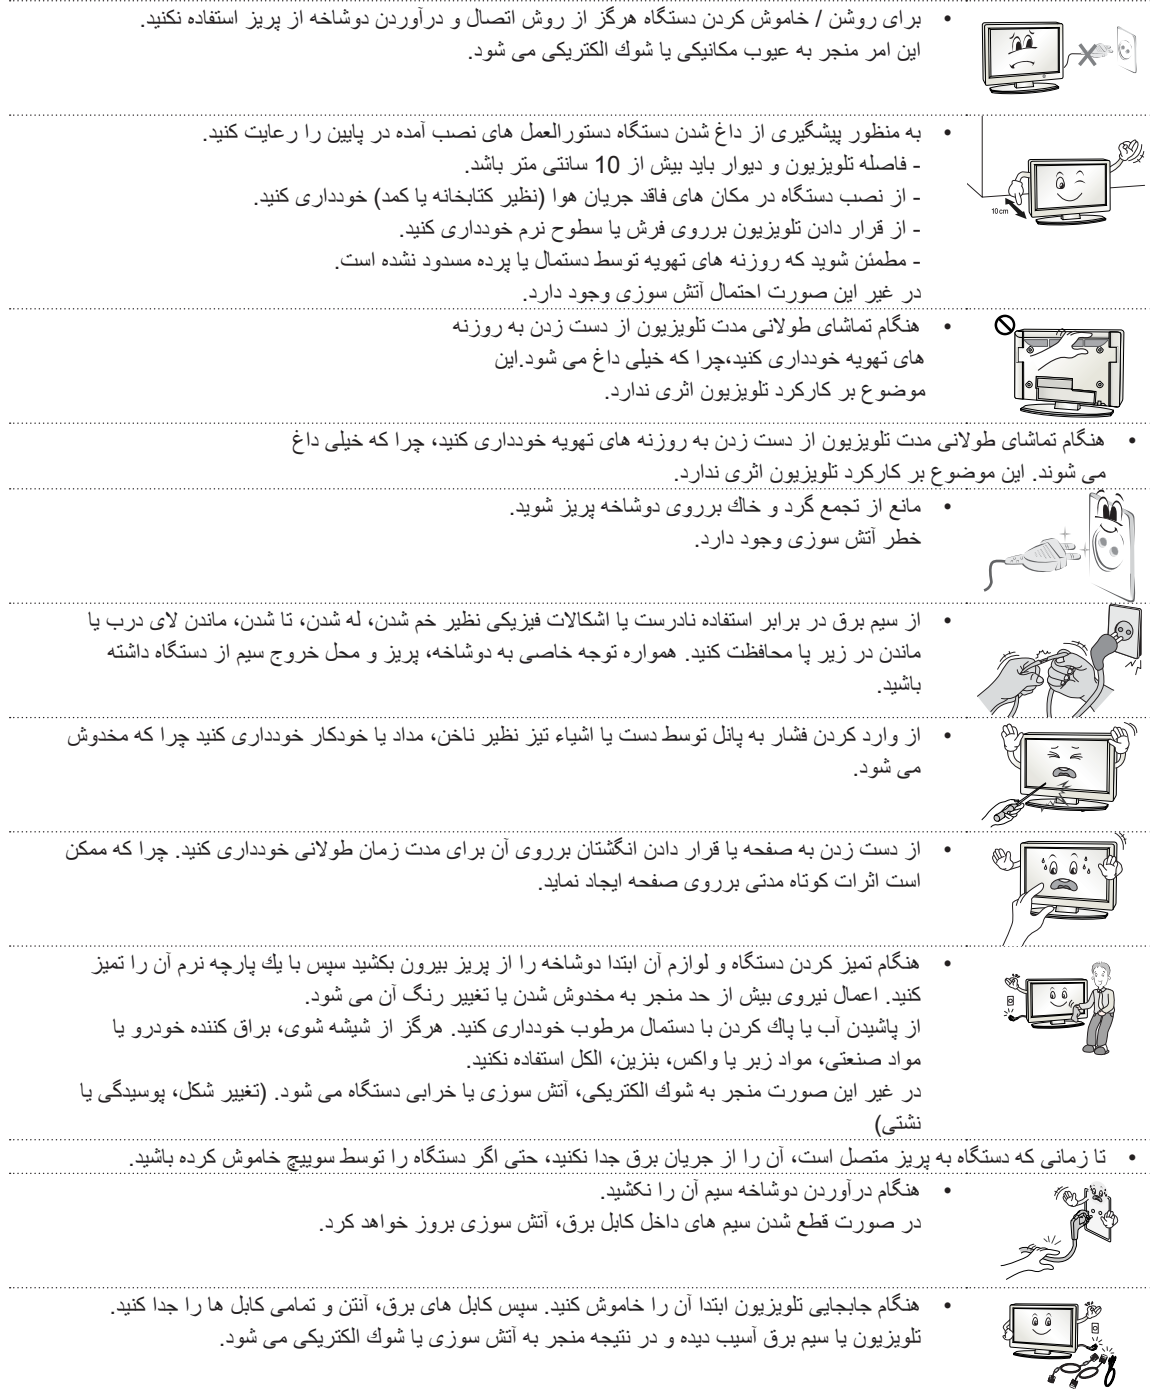 • برای روشن / خاموش کردن دستگاه هرگز از روش اتصال و درآوردن دوشاخه از پریز استفاده نکنید.
این امر منجر به عیوب مکانیکی یا شوك الکتریکی می شود.
• به منظور پیشگیری از داغ شدن دستگاه دستورالعمل های نصب آمده در پایین را رعایت کنید.
- فاصله تلویزیون و دیوار باید بیش از 10 سانتی متر باشد.
- از نصب دستگاه در مکان های فاقد جریان هوا (نظیر کتابخانه یا کمد) خودداری کنید.
- از قرار دادن تلویزیون برروی فرش یا سطوح نرم خودداری کنید.
- مطمئن شوید که روزنه های تهویه توسط دستمال یا پرده مسدود نشده است.
در غیر این صورت احتمال آتش سوزی وجود دارد.
10cm
• هنگام تماشای طولانی مدت تلویزیون از دست زدن به روزنه
های تهویه خودداری کنید،چرا که خیلی داغ می شود.این
موضوع بر کارکرد تلویزیون اثری ندارد.
• هنگام تماشای طولانی مدت تلویزیون از دست زدن به روزنه های تهویه خودداری کنید، چرا که خیلی داغ
می شوند. این موضوع بر کارکرد تلویزیون اثری ندارد.
• مانع از تجمع گرد و خاك برروی دوشاخه پریز شوید.
خطر آتش سوزی وجود دارد.
• از سیم برق در برابر استفاده نادرست یا اشکالات فیزیکی نظیر خم شدن، له شدن، تا شدن، ماندن لای درب یا
ماندن در زیر پا محافظت کنید. همواره توجه خاصی به دوشاخه، پریز و محل خروج سیم از دستگاه داشته
باشید.
• از وارد کردن فشار به پانل توسط دست یا اشیاء تیز نظیر ناخن، مداد یا خودکار خودداری کنید چرا که مخدوش
می شود.
• از دست زدن به صفحه یا قرار دادن انگشتان برروی آن برای مدت زمان طولانی خودداری کنید. چرا که ممکن
است اثرات کوتاه مدتی برروی صفحه ایجاد نماید.
• هنگام تمیز کردن دستگاه و لوازم آن ابتدا دوشاخه را از پریز بیرون بکشید سپس با یك پارچه نرم آن را تمیز
کنید. اعمال نیروی بیش از حد منجر به مخدوش شدن یا تغییر رنگ آن می شود.
از پاشیدن آب یا پاك کردن با دستمال مرطوب خودداری کنید. هرگز از شیشه شوی، براق کننده خودرو یا
مواد صنعتی، مواد زبر یا واکس، بنزین، الکل استفاده نکنید.
در غیر این صورت منجر به شوك الکتریکی، آتش سوزی یا خرابی دستگاه می شود. (تغییر شکل، پوسیدگی یا
نشتی)
• تا زمانی که دستگاه به پریز متصل است، آن را از جریان برق جدا نکنید، حتی اگر دستگاه را توسط سوییچ خاموش کرده باشید.
• هنگام درآوردن دوشاخه سیم آن را نکشید.
در صورت قطع شدن سیم های داخل کابل برق، آتش سوزی بروز خواهد کرد.
• هنگام جابجایی تلویزیون ابتدا آن را خاموش کنید. سپس کابل های برق، آنتن و تمامی کابل ها را جدا کنید.
تلویزیون یا سیم برق آسیب دیده و در نتیجه منجر به آتش سوزی یا شوك الکتریکی می شود.